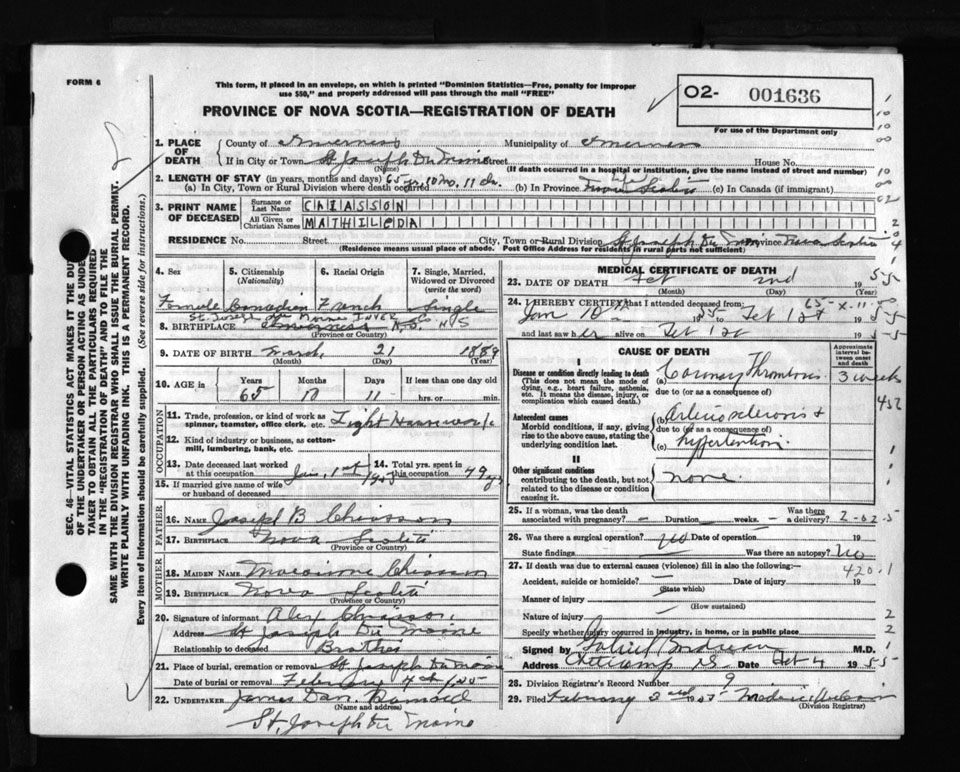 FORM 6
This form, if placed in an envelope, on which is printed "Dominion Statistics—Free, penalty for improper
use $50," and properly addressed will pass through the mail "FREE"
PROVINCE OF NOVA SCOTIA—REGISTRATION OF DEATH
O2- 001636
For use of the Department only
SEC. 46—VITAL STATISTICS ACT MAKES IT THE DUTY
OF THE UNDERTAKER OR PERSON ACTING AS UNDER-
TAKER TO OBTAIN ALL THE PARTICULARS REQUIRED
IN THE "REGISTRATION OF DEATH" AND TO FILE THE
SAME WITH THE DIVISION REGISTRAR WHO SHALL ISSUE THE BURIAL PERMIT.
WRITE PLAINLY WITH UNFADING INK. THIS IS A PERMANENT RECORD.
Every item of information should be carefully supplied. (See reverse side for instructions.)
1. PLACE OF DEATH
County of Inverness Municipality of Inverness
If in City or Town St Joseph Du Moine Street House No.
(Name) (If death occurred in hospital or institution, give the name instead of street and number)
2. LENGTH OF STAY (in years, months and days) 65 yr. 10 mo. 11 ds.
(a) In City, Town or Rural Division where death occurred (b) In Province Nova Scotia (c) In Canada (if immigrant)
3. PRINT NAME OF DECEASED
Surname or Last Name CHIASSON
All Given or Christian Names MATHILDA
RESIDENCE No. Street City, Town or Rural Division St Joseph Du Moine Province Nova Scotia
(Residence means usual place of abode. Post Office Address for residents in rural parts not sufficient)
4. Sex 5. Citizenship (Nationality) 6. Racial Origin 7. Single, Married, Widowed or Divorced (write the word)
Female Canadian French Single
St. Joseph du Moine INVER Co NS
8. BIRTHPLACE Inverness N.S.
(Province or Country)
9. DATE OF BIRTH March 21 1889
(Month) (Day) (Year)
10. AGE in Years Months Days If less than one day old
65 10 11 hrs. or min.
OCCUPATION
11. Trade, profession, or kind of work as
spinner, teamster, office clerk, etc. Light Housework
12. Kind of industry or business, as cotton-
mill, lumbering, bank, etc.
13. Date deceased last worked
at this occupation Jan. 1st 1955
14. Total yrs. spent in
this occupation 49 yrs
15. If married give name of wife
or husband of deceased
FATHER
16. NAME Joseph B Chiasson
17. BIRTHPLACE Nova Scotia
(Province or Country)
MOTHER
18. MAIDEN NAME Chiasson
19. BIRTHPLACE Nova Scotia
(Province or Country)
20. Signature of informant Alex Chiasson
Address St Joseph Du Moine
Relationship to deceased Brother
21. Place of burial, cremation or removal St. Joseph Du Moine
Date of burial or removal February 4th
22. UNDERTAKER James Dan
St. Joseph Du Moine
MEDICAL CERTIFICATE OF DEATH
23. DATE OF DEATH Feb 2nd 1955
(Month) (Day)
24. I HEREBY CERTIFY that I attended deceased from:
Jan 10th 1955 to Feb 1st 1955
and last saw her alive on Feb 1st 1955
CAUSE OF DEATH
Approximate interval between onset and death
I
Disease or condition directly leading to death
(This does not mean the mode of
dying, e.g., heart failure, asthenia,
etc. It means the disease, injury, or
complication which caused death.)
(a) Coronary Thrombosis 3 weeks
due to (or as a consequence of)
Antecedent causes
Morbid conditions, if any, giving
rise to the above cause, stating the
underlying condition last.
(b) Arteriosclerosis +
due to (or as a consequence of)
(c) hypertention
II
Other significant conditions
contributing to the death, but not
related to the disease or condition
causing it.
none
25. If a woman, was the death
associated with pregnancy? – Duration weeks. – Was there a delivery?
26. Was there a surgical operation? No Date of operation 19
State findings Was there an autopsy? No
27. If death was due to external causes (violence) fill in also the following:—
420.1
Accident, suicide or homicide? Date of injury 19
(State which)
Manner of injury
(How sustained)
Nature of injury
Specify whether injury occurred in industry, in home, or in public place
Signed by M.D.
Address Cheticamp NS Date Feb 4 1955
28. Division Registrar's Record Number 9
29. Filed February 2nd 1955
(Division Registrar)